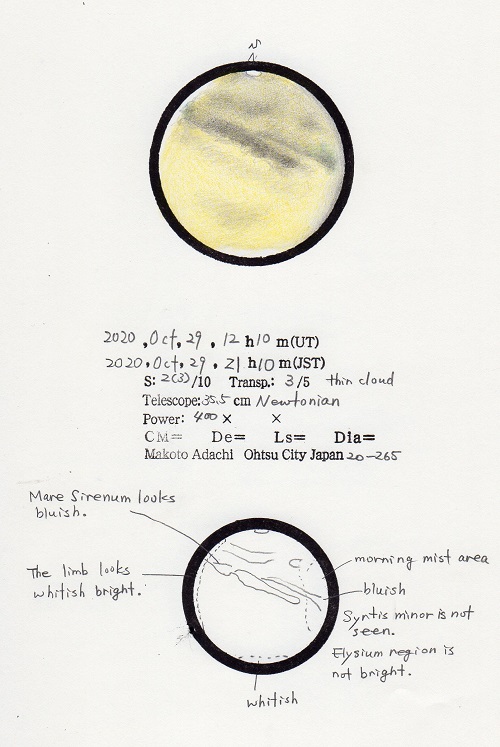 S
2020, Oct, 29, 12 h 10 m (UT)
2020, Oct, 29, 21 h 10 m (JST)
S: 2(3)/10 Transp.: 3/5 thin cloud
Telescope: 35.5 cm Newtonian
Power: 400 × ×
CM= De= Ls= Dia=
Makoto Adachi Ohtsu City Japan 20-265
Mare Sirenum looks
bluish.
The limb looks
whitish bright.
morning mist area
bluish
Syrtis minor is not
seen.
Elysium region is
not bright.
whitish